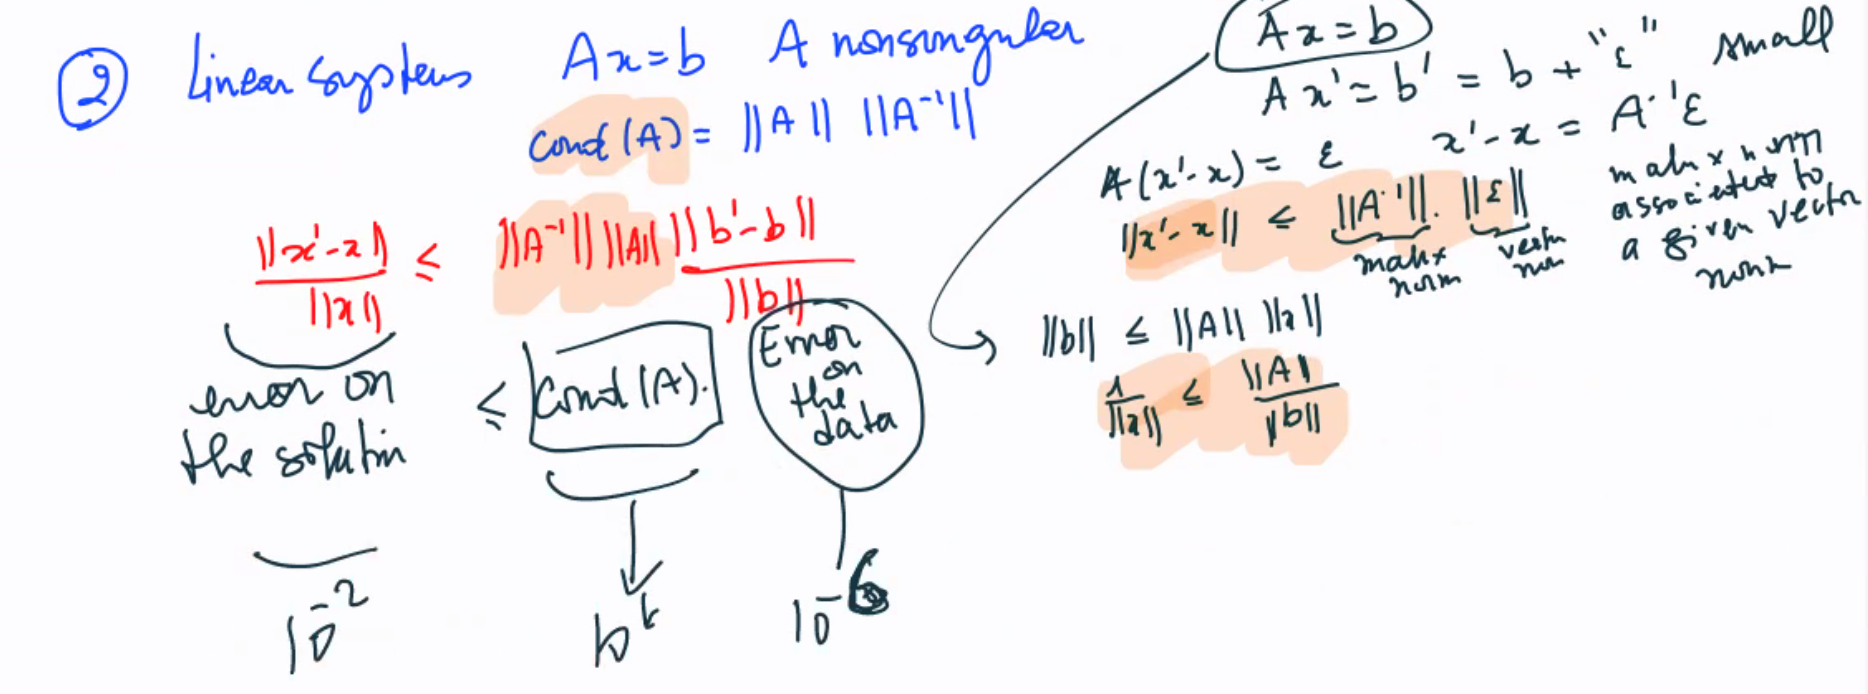 ② Linear systems Ax=b A nonsingular
cond(A) = ||A|| ||A⁻¹||
||x'-x|| / ||x|| ≤ ||A⁻¹|| ||A|| ||b'-b|| / ||b||
error on the solution ≤ Cond(A). Error on the data
10⁻² 10⁻⁶
Ax=b
Ax'=b' = b + "ε" small
A(x'-x) = ε x'-x = A⁻¹ε
||x'-x|| ≤ ||A⁻¹||. ||ε||
matrix norm
vector norm
matrix norm
associated to
a given vector
norm
||b|| ≤ ||A|| ||x||
1/||x|| ≤ ||A||/||b||